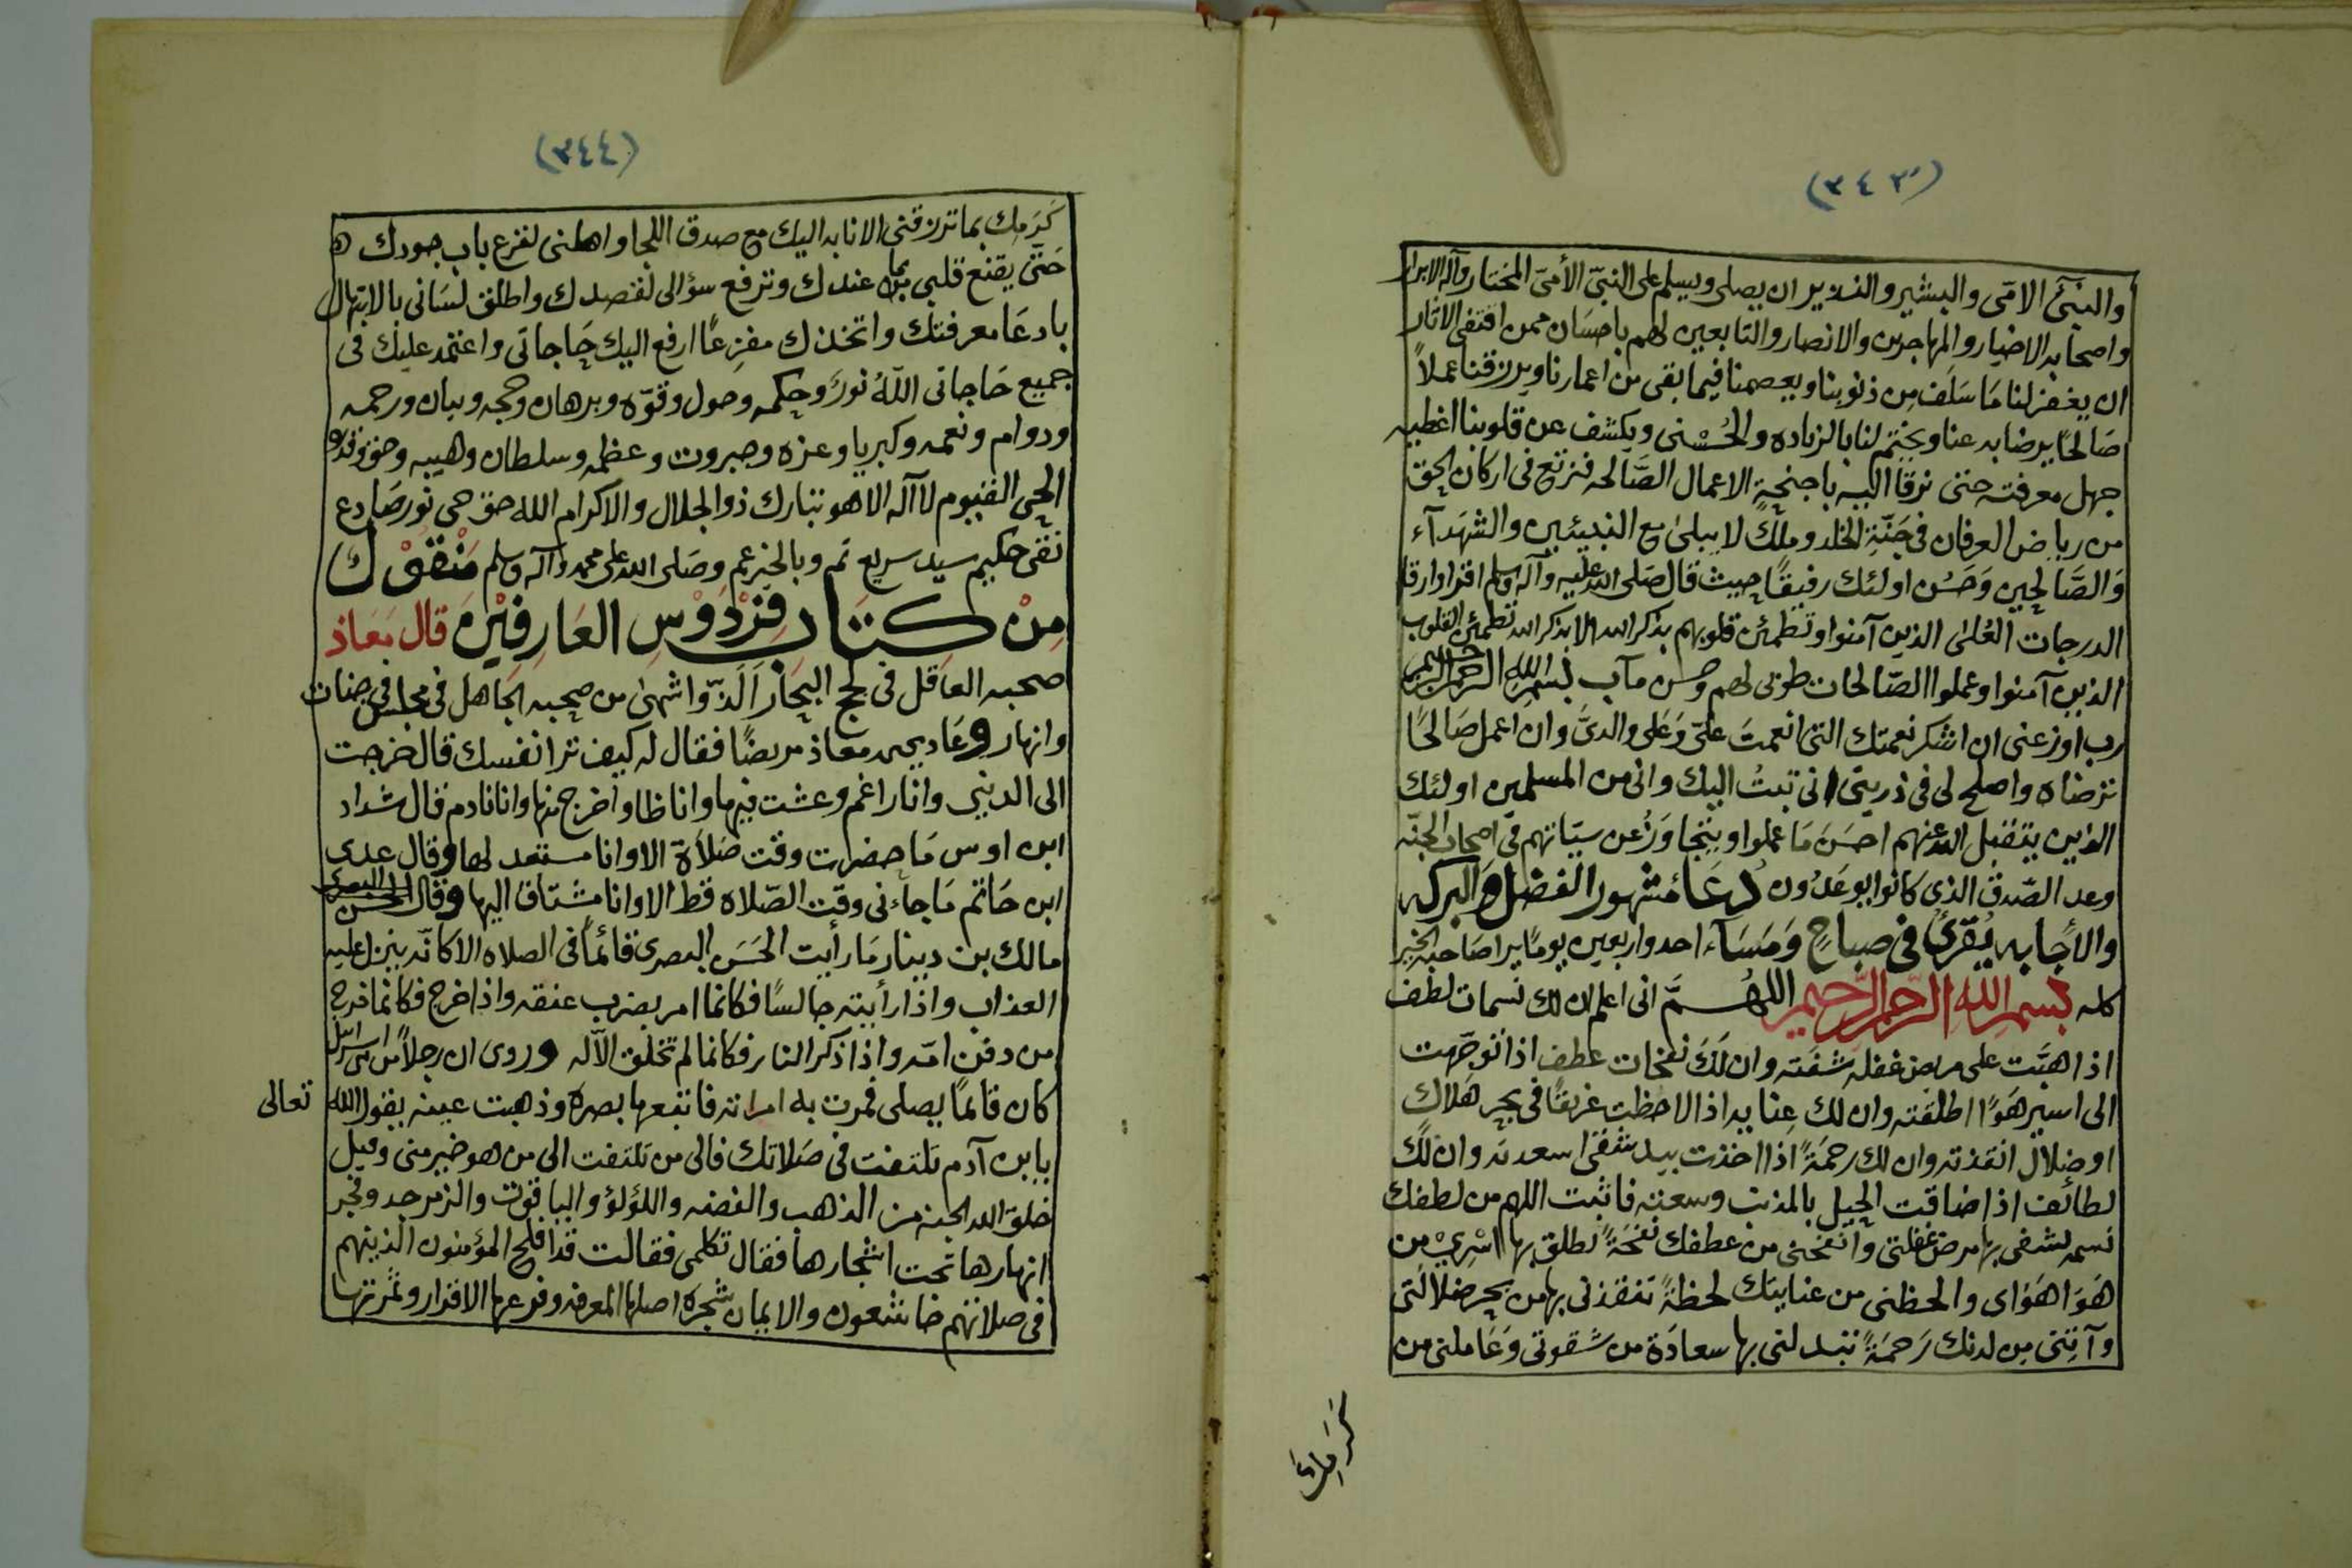 (٣٤٣)
والنبيّ الامّي والبشير والنذير ان يصلي ويسلم على النبيّ الأميّ المختار وآله الابرار
واصحابه الاخيار والمهاجرين والانصار والتابعين لهم باحسَان ممن اقتفى الاثار
ان يغفر لنا مَا سَلَف مِن ذنوبنا ويعصمنا فيما بقى من اعمارنا ويرزقنا عملاً
صَالحًا يرضا به عنا ويختم لنا بالزياده والحُسْنى ويكشف عن قلوبنا اغطيه
جهل معرفته حتى نرقا اليه باجنحةِ الاعمال الصَّالحه فنرتع في اركان الحق
من رياض العرفان في جَنّةِ الخلد وملكٍ لا يبلىٰ مع النبيئين والشهَدآء
وَالصَّالحين وَحَسُن اولئك رفيقًا حيث قال صَلى الله عليه وآله وسلم اقرا وارقا
الدرجات العُلىٰ الذين آمنوا وتطمئن قلوبهم بذكر الله الا بذكر الله تطمئن القلوب
الذين آمنوا وعملوا الصّالحات طوبى لهم وحسن مآب بسم الله الرحمن الرحيم
رب اوزعنى ان اشكر نعمتك التى انعمتَ عليّ وَعَلى والدىَّ وان اعمل صَالحًا
ترضاه واصلح لى في ذريتى انى تبتُ اليك وانى من المسلمين اولئك
الذين يتقبل الله عنهم احسَنَ مَا عملوا ويتجاوَزُ عن سيّاتهم في اصحاب الجنّه
وعد الصّدق الذى كانوا يوعَدُون دُعَا مَشهور الفضل والبركه
والأجابه يُقرئ في صباحٍ وَمَسَآء احد واربعين يومًا يرا صَاحبه الخير
كله بسم الله الرّحمن الرّحيم اللهُمَّ انى اعلم ان لك نسمات لطف
اذا هبَّت على مريض غفله شفَته وان لَكَ نفحات عطف اذا توجّهت
الى اسير هَوًا اطلقَته وان لك عِنايه اذا لاحظت غريقًا في بحر هَلاك
اوضلال انقذته وان لك رحمَةً اذا اخذت بيد شقى اسعدته وان لك
لطائف اذا ضاقت الحيل بالمذنب وسعته فاثبت اللهم من لطفك
نسمه تشفى بها مرض غفلتى وانفحنى من عطفك نفحَةً تطلق بها اسْرِيْ من
هَوَا هَوَاى والحظنى من عنايتك لحظةً تنقذنى بها من بحر ضلالتى
وآتِنى مِن لدنك رَحمَةً تبدلنى بها سعادَة من شقوتى وَعَاملنى من
كَرَمِكَ
(٣٤٤)
كَرَمِك بما ترزقنى الانابه اليك مع صدق اللجا واهلنى لقرع باب جودك
حَتى يقنع قلبى بما عندك وترفع سؤالى لقصدك واطلق لسَانى بالابتهال
يا دعَا معرفتك واتخذك مفزِعًا ارفع اليك حَاجاتى واعتمد عليك فى
جميع حَاجاتى اللّهُ نورٌ وحكمه وحول وقوّه وبرهان وحجه وبيان ورحمه
ودوام ونعمه وكبريا وعزه وجبروت وعظمه وسلطان وهيبه
الحى القيوم لا آله الا هو تبارك ذو الجلال والاكرام الله حق حى نور صَادع
نقى حكيم سيد سريع تم وبالخير عم وصَلى الله على محمد وآله وسلم مَنْقوْل
مِنْ كتَاب فِرْدَوْسِ العَارِفِيْنَ قال مَعَاذ
صحبه العَاقل في لجج البحَار اَلَذّ واشهىٰ من صحبه الجَاهل في مجلس في جنات
وانهار وعَاد يحيى مَعَاذ مريضًا فقال له كيف ترا نفسك قال خرجت
الى الدنيى وانا راغم وعشت فيها وانا ظا واخرج منها وانا نادم قال شداد
ابن اوس مَا حضرت وقت صَلاَة الا وانا مستعد لها وقال عدى
ابن حَاتم مَا جاءَنى وقت الصّلاه قط الا وانا مشتاق اليها وقال الحسن البصرى
مالك بن دينار مَا رأيت الحَسَن البصرى قائماً في الصلاه الا كانّه ينزل عليه
العذاب واذا رأيته جالسًا فكانما امر بضرب عنقه واذا خرج فكانما خرج
من دفن امّه واذا ذكر النار فكانما لم تخلق الاّ له وروى ان رجلاً من اسرائيل
كان قائمًا يصلى فمرت به امراته فاتبعها بصره وذهبت عينه يقول الله تعالى
يابن آدم تلتفت في صَلاتك فالى من تلتفت الى من هو خير منى وقيل
خلق الله الجنه من الذهب والفضه واللؤلؤ والياقوت والزمرجد وفجر
انهارها تحت اشجارها فقال تكلمى فقالت قد افلح المؤمنون الذينهم
فى صلاتهم خاشعون والايمان شجره اصلها المعرفه وفوعها الاقرار وثمرتها